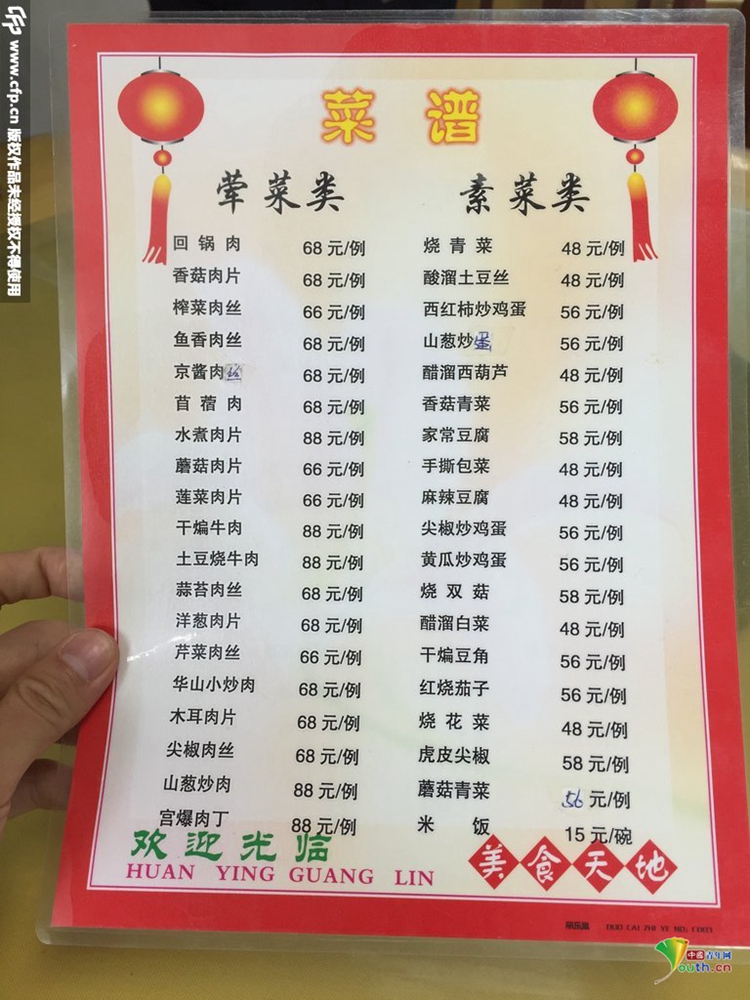 www.cfp.cn 版权作品未经授权不得使用
菜 谱
荤菜类
回锅肉 68元/例
香菇肉片 68元/例
榨菜肉丝 66元/例
鱼香肉丝 68元/例
京酱肉丝 68元/例
苜蓿肉 68元/例
水煮肉片 88元/例
蘑菇肉片 66元/例
莲菜肉片 66元/例
干煸牛肉 88元/例
土豆烧牛肉 88元/例
蒜苔肉丝 68元/例
洋葱肉片 68元/例
芹菜肉丝 66元/例
华山小炒肉 68元/例
木耳肉片 68元/例
尖椒肉丝 68元/例
山葱炒肉 88元/例
宫爆肉丁 88元/例
素菜类
烧青菜 48元/例
酸溜土豆丝 48元/例
西红柿炒鸡蛋 56元/例
山葱炒蛋 56元/例
醋溜西葫芦 48元/例
香菇青菜 56元/例
家常豆腐 58元/例
手撕包菜 48元/例
麻辣豆腐 48元/例
尖椒炒鸡蛋 56元/例
黄瓜炒鸡蛋 56元/例
烧双菇 58元/例
醋溜白菜 48元/例
干煸豆角 56元/例
红烧茄子 56元/例
烧花菜 48元/例
虎皮尖椒 58元/例
蘑菇青菜 56元/例
米饭 15元/碗
欢迎光临
HUAN YING GUANG LIN
美食天地
中国青年网
youth.cn